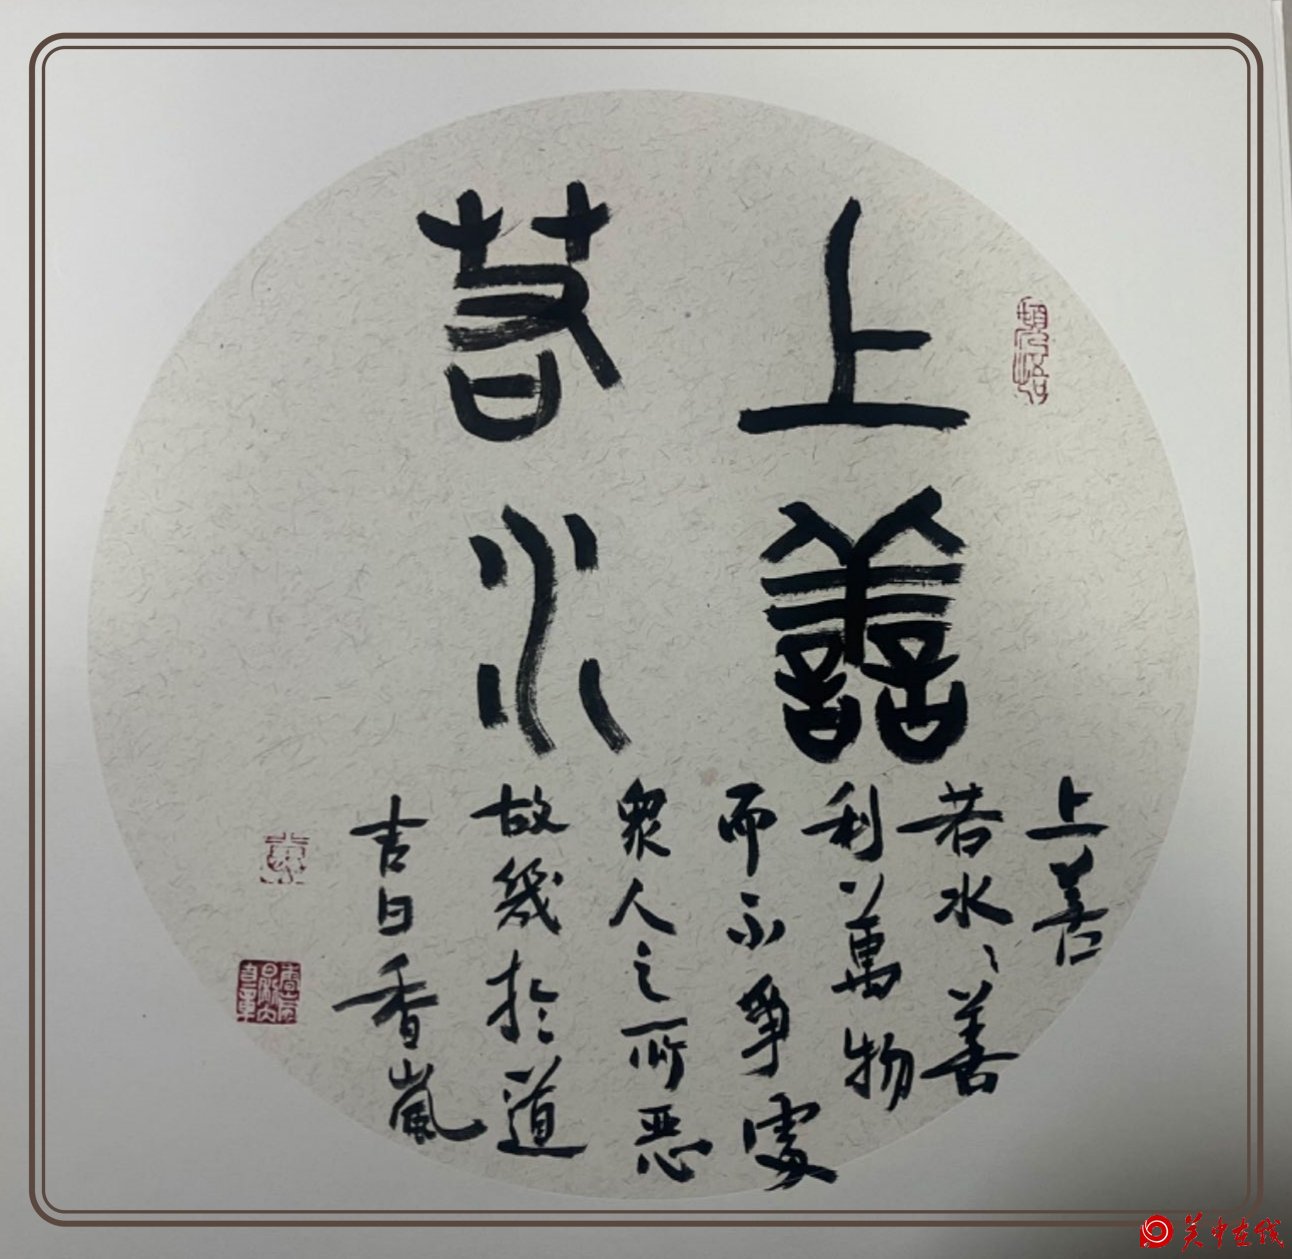 上善
若水
上善
若水〻善
利萬物
而不爭處
眾人之所恶
故幾於道
吉日香嵐
关中在线